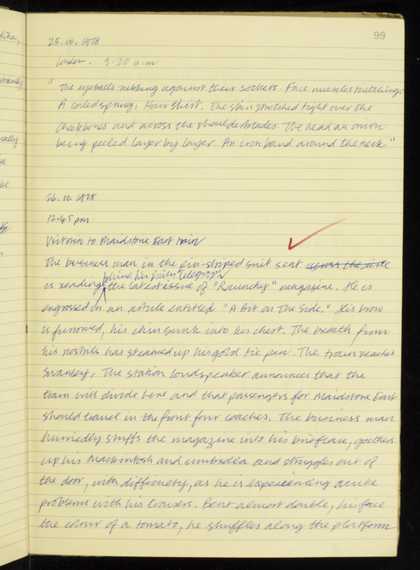 99
25.10.1978
London. 3.20 a.m
" The eyeballs rubbing against their sockets. Face muscles twitching.
A coiled spring. Hair shirt. The skin stretched tight over the
cheekbones and across the shoulderblades. The head an onion
being peeled layer by layer. An iron band around the neck."
26.10.1978
12.45 pm.
Victoria to Maidstone East train
The business man in the pin-striped suit sent across the aisle
behind his folded Telegraph
is reading the latest issue of "Roundup" magazine. He is
engrossed in an article entitled "A Bit on The Side." His brow
is furrowed, his chin sunk into his chest. The breath from
his nostrils has steamed up his gold tie pin. The train reaches
Swanley. The station loudspeaker announces that the
train will divide here and that passengers for Maidstone East
should travel in the front four coaches. The business man
hurriedly stuffs the magazine into his briefcase, gathers
up his Mackintosh and umbrella and struggles out of
the door, with difficulty, as he is experiencing acute
problems with his trousers. Bent almost double, his face
the colour of a tomato, he shuffles along the platform